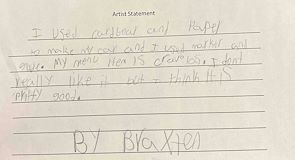 Artist Statement
I used cardboar and Paper
to make my car and I used marker and
My menu iten is I dont
really like it but I think it is
pritty good.
BY Braxten